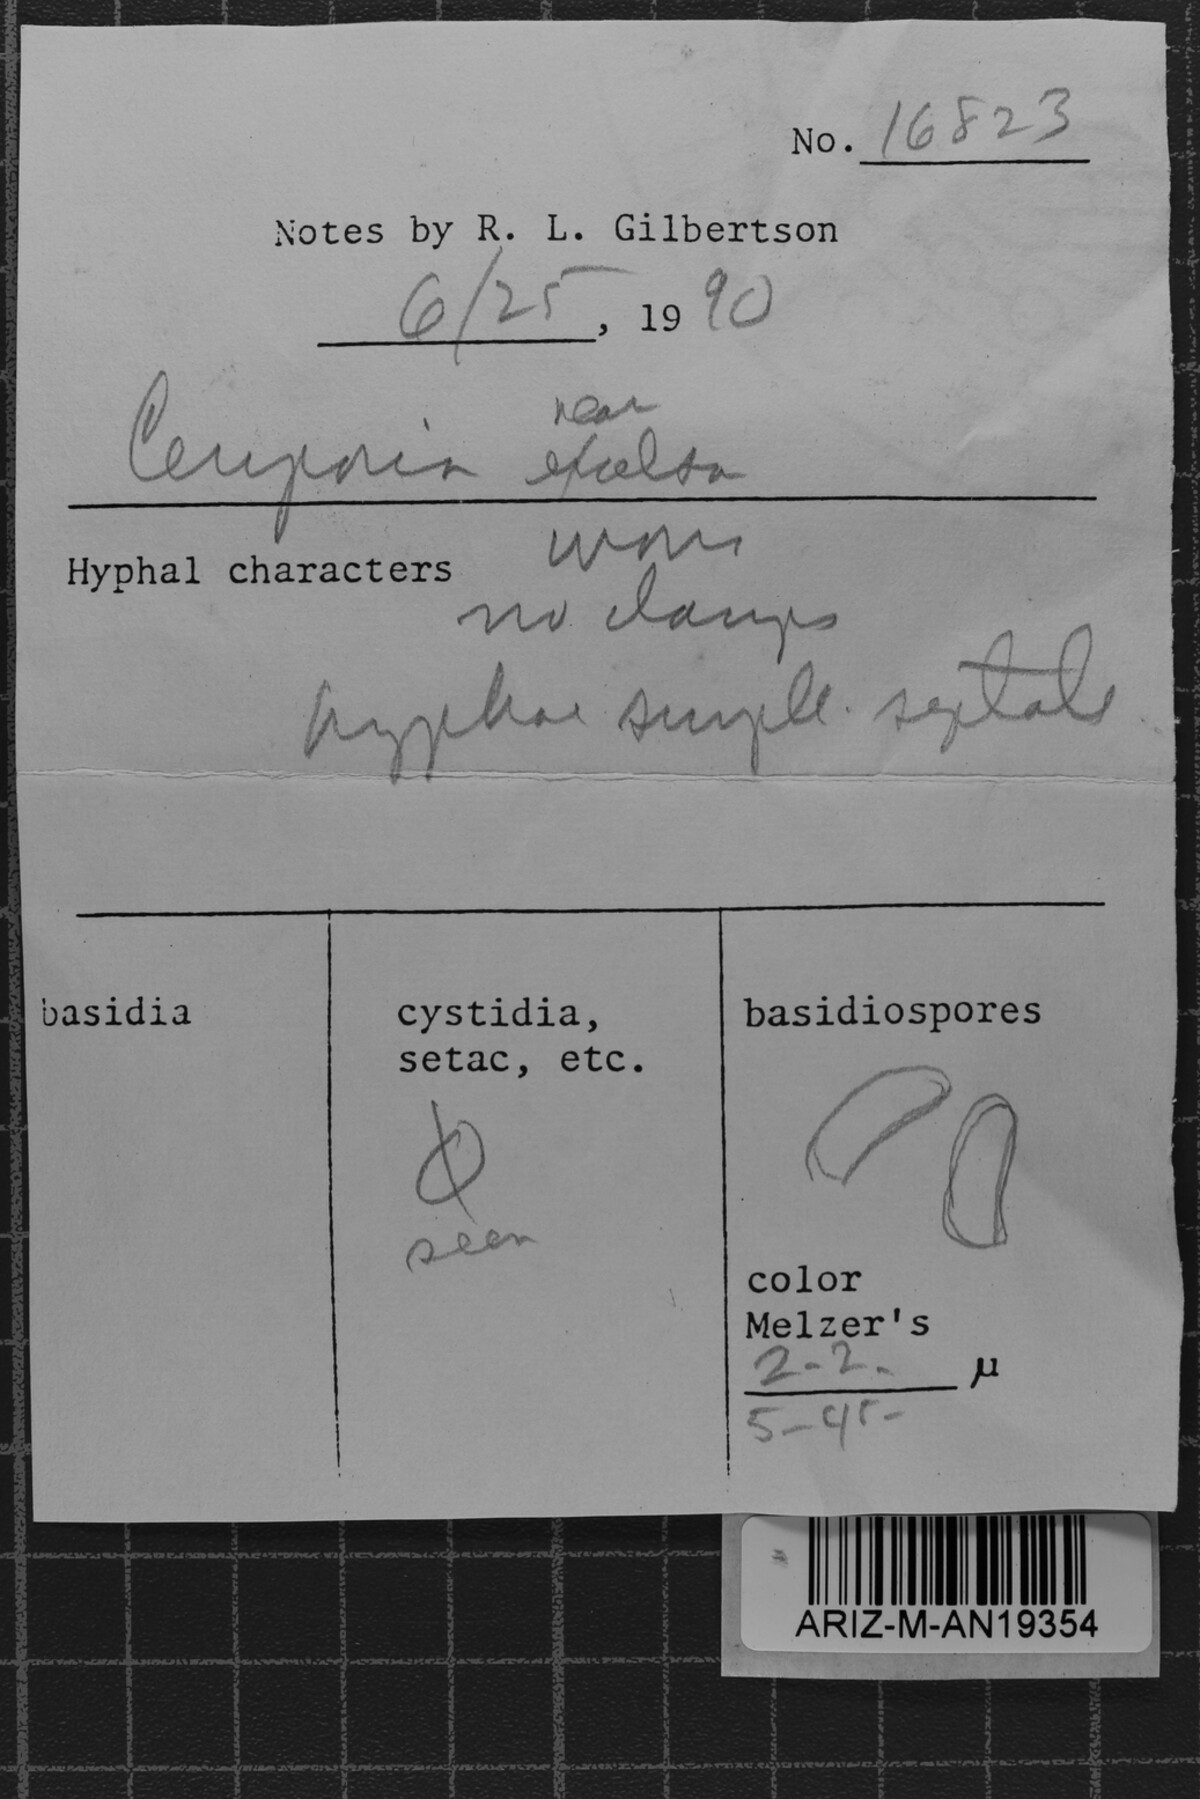 No. 16823
Notes by R. L. Gilbertson
6/25, 1990
near
Ceriporia excelsa
Hyphal characters
no clamps
hyphae simple septate
basidia
cystidia,
setac, etc.
Φ
seen
basidiospores
color
Melzer's
2-2. μ
5-
ARIZ-M-AN19354